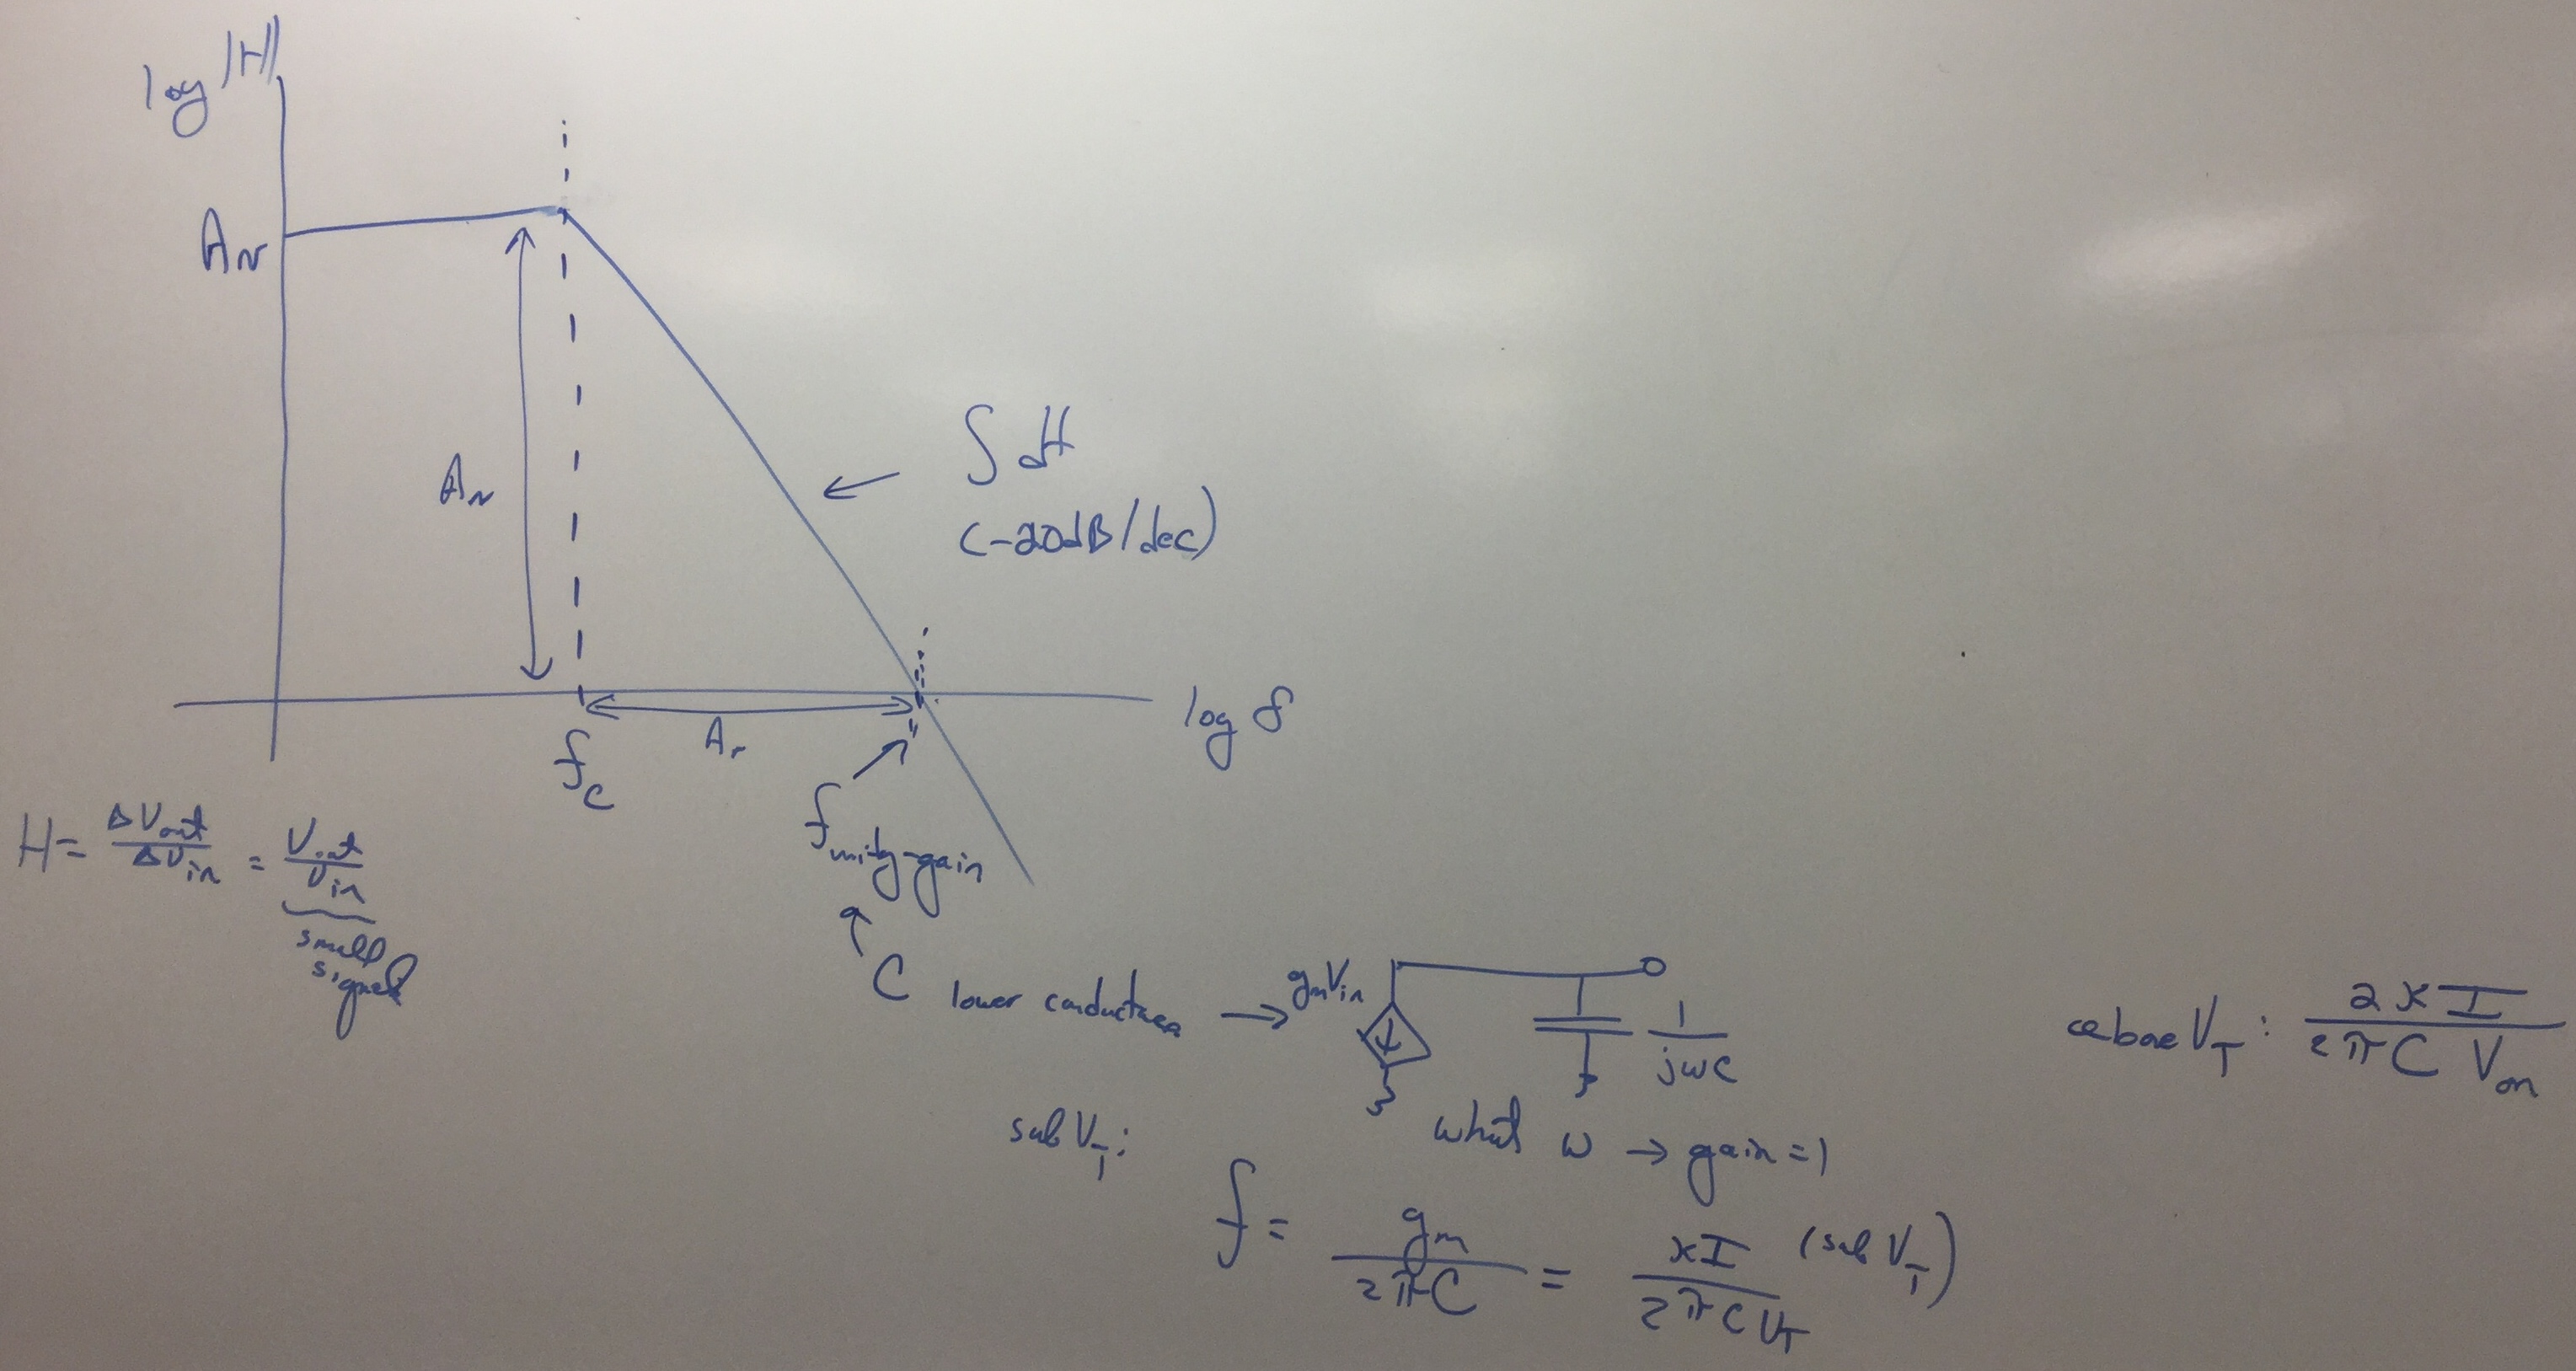 log |H|
A_v
A_v
∫ dt
(-20dB/dec)
log f
A_v
f_c
f_unity-gain
H = ΔV_out/ΔV_in = V_out/V_in
small
signal
C lower conductance → g_m V_in
1/jωC
what ω → gain = 1
above V_T: 2κI/2πC V_on
sub V_T:
f = g_m/2πC = κI/2πC U_T (sub V_T)